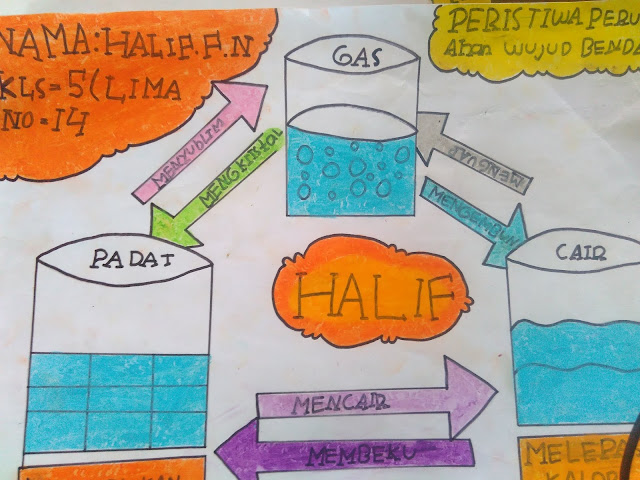 NAMA:HALIF.F.N
KLS=5(LIMA
NO=14
PERISTIWA PERU
AHAN WUJUD BENDA
GAS
MENYUBLIM
MENGKRISTAL
MENGUAP
MENGEMBUN
PADAT
CAIR
HALIF
MENCAIR
MEMBEKU
MELEPA
KALOR